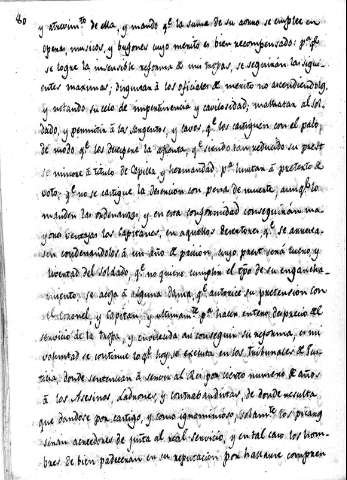 80
y atrevim.to de ella, y mando q.e la suma de su aorro se emplee en
operas, musicos, y bufones cuyo merito es bien recompensado: p.a q.e
se logre la insensible reforma de mis tropas, se seguirán las sigui-
entes maximas; disgustan á los oficiales de merito no ascendiendolos,
y notando su celo de impertinencia y cavilosidad; maltratar al sol-
dado, y permitir á los sargentos, y cavos, q.e los castiguen con el palo,
de modo q.e los desespere la afrenta; siendo tan reducido su prest
se minore á titulo de Capilla, y hermandad, p.a limitan á pretexto de
voto; q.e no se castigue la desercion con pena de muerte, aunq.e lo
manden las ordenanzas, y en esta conformidad conseguirán ma-
yores ventajas los Capitanes, en aquellos desertores q.e se aprehen-
sen condenandoles á un año de pricion, cuyo prest será suyo, y
libertad del soldado, q.e no quiere cumplir el tpo de su engancha-
miento, se acoja á alguna dama q.e autorice su pretension con
el Coronel, y Capitan, y ultimam.te p.a hacer entero desprecio del
servicio de la tropa, y envilecida asi conseguir su reforma, es mi
voluntad se continue lo q.e hoy se executa en los Tribunales de Jus-
ticia, donde sentencian á servir al Rei por cierto numero de años
á los Asesinos, Ladrones, y contrabandistas, de donde resulta
que dandose por castigo, y como ignominioso, solam.te los picaros
serán acrehedores de justa al real servicio, y en tal caso los hom-
bres de bien padeceran en su reputacion por hallarse compren